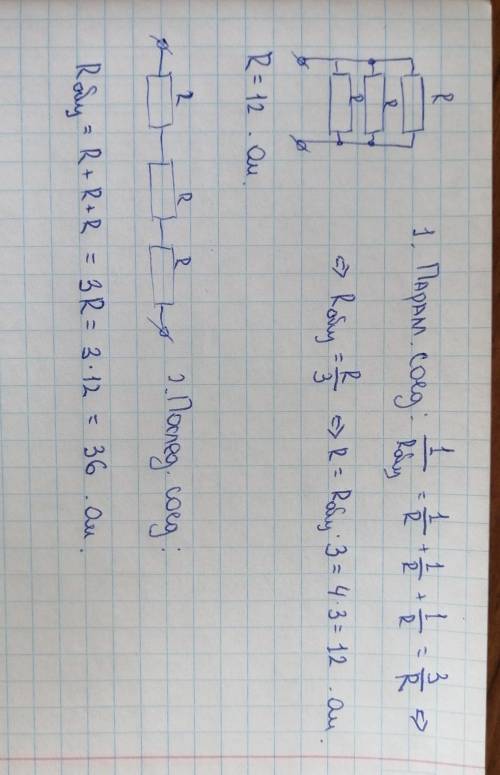 R
R
R
1. Парал. соед: 1/Rобщ = 1/R + 1/R + 1/R = 3/R =>
=> Rобщ = R/3 => R = Rобщ · 3 = 4 · 3 = 12 . Ом.
R = 12 . Ом.
R
R
R
2. Послед. соед:
Rобщ = R + R + R = 3R = 3 · 12 = 36 . Ом.